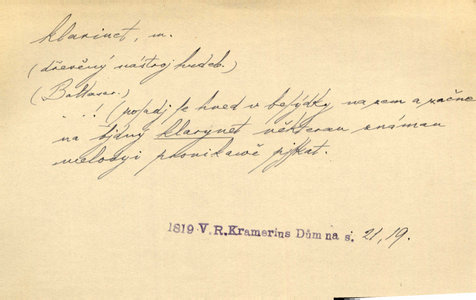 klarinet, m.
(dřevěný nástroj hudeb.)
(Baltazar.)
...! (posadj se hned v
na zem a začne
na bjdný klarynet některau známau
melodyi pronikawě pjskat.
1819 V. R. Kramerius Dům na s. 21, 19.